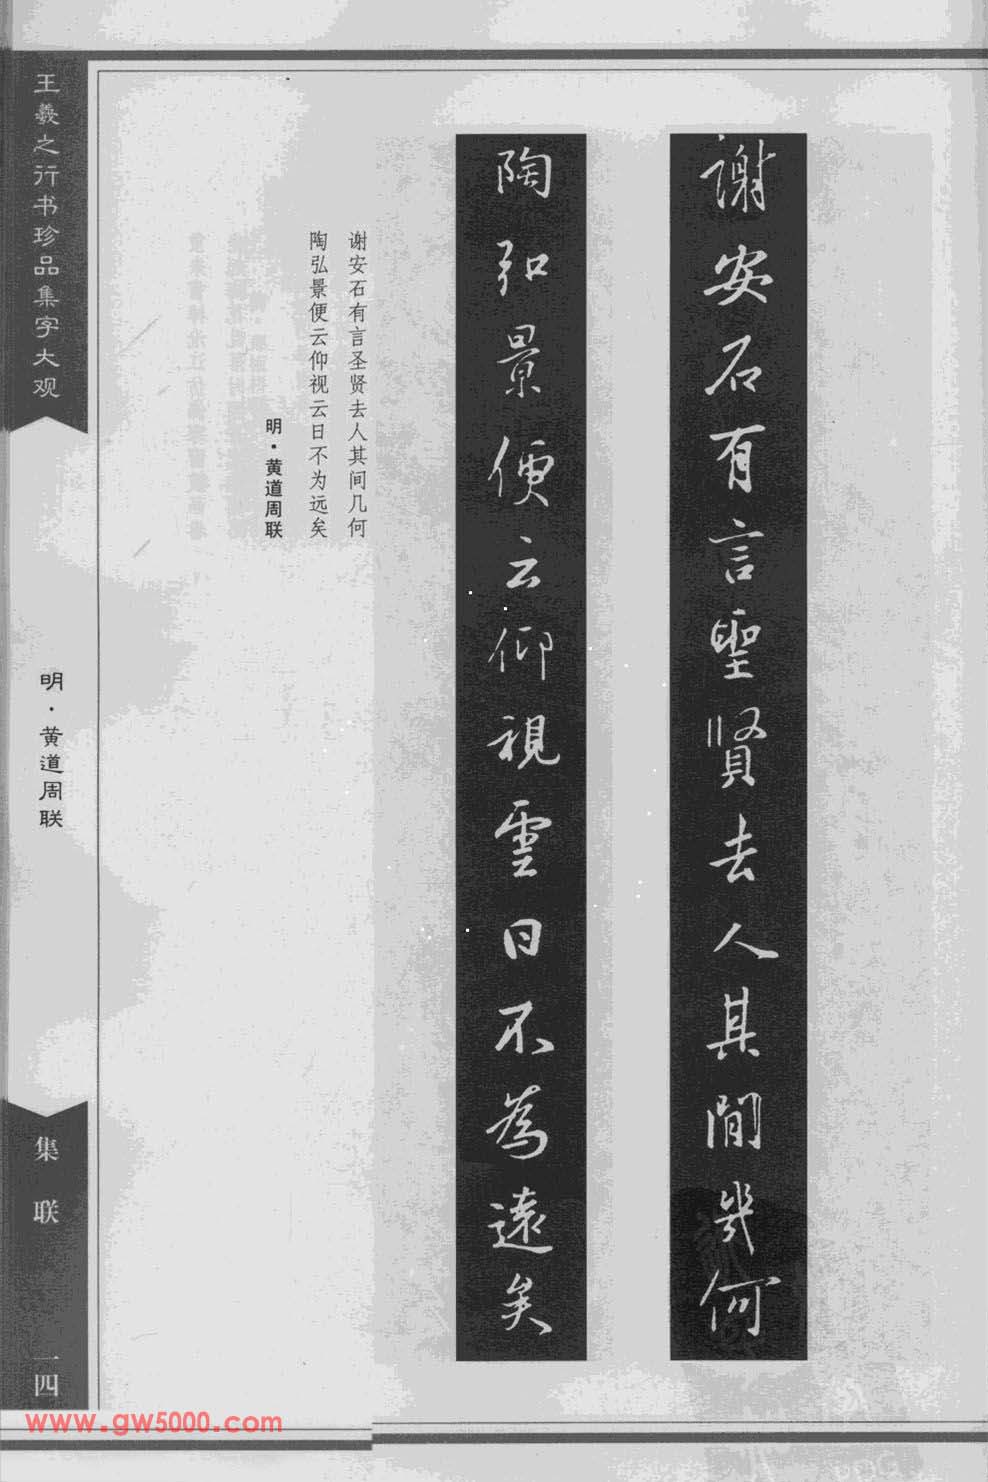 謝安石有言聖賢去人其間幾何
陶弘景便云仰視雲日不為遠矣
谢安石有言圣贤去人其间几何
陶弘景便云仰视云日不为远矣
明·黄道周联
王羲之行书珍品集字大观
明·黄道周联
集联
一四
www.gw5000.com